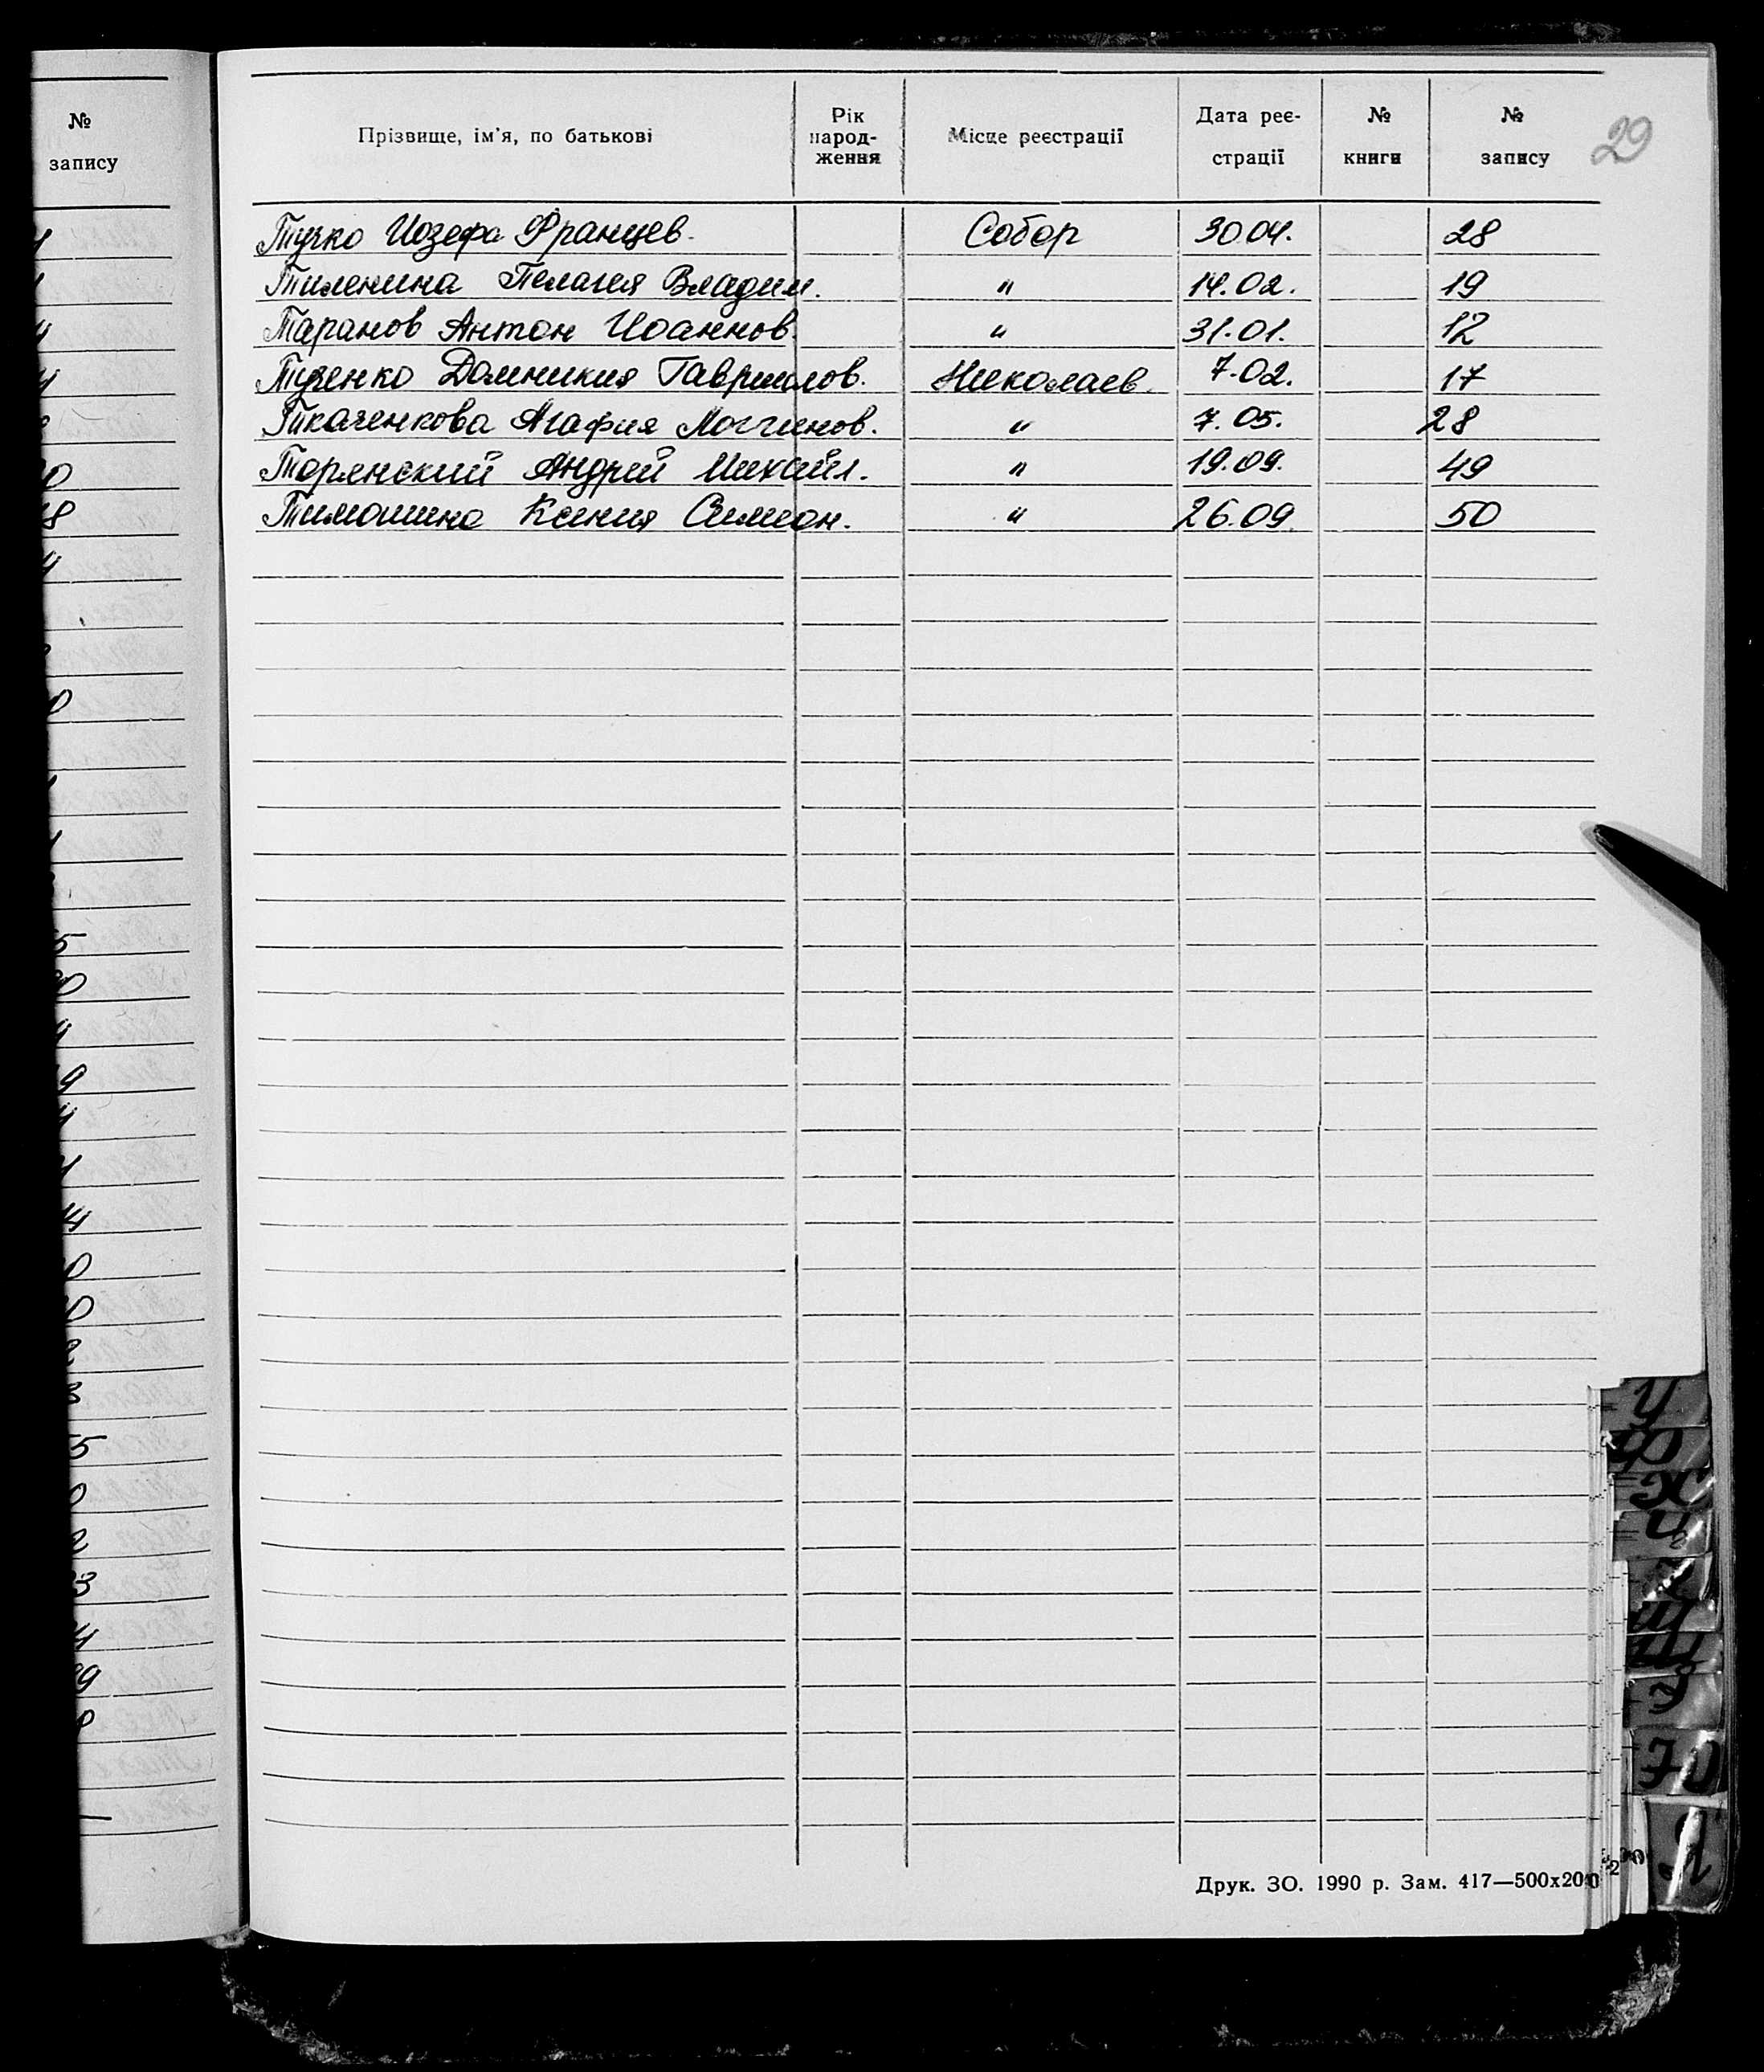 №
запису
Прізвище, ім'я, по батькові
Рік народ-ження
Місце реєстрації
Дата реє-страції
№ книги
№ запису
29
Тучко Иозефа Францев. Собор 30.04. 28
Тиленина Пелагея Владим. " 14.02. 19
Таранов Антон Иоаннов. " 31.01. 12
Туренко Домникия Гавриилов. Николаев. 7.02. 17
Ткаченкова Агафия Логгинов. " 7.05. 28
Торянский Андрей Михайл. " 19.09. 49
Тимошина Ксения Симеон. " 26.09. 50
У
Ф
Х
Ц
Ч
Ш
Щ
Э
Ю
Я
Друк. ЗО. 1990 р. Зам. 417—500х200